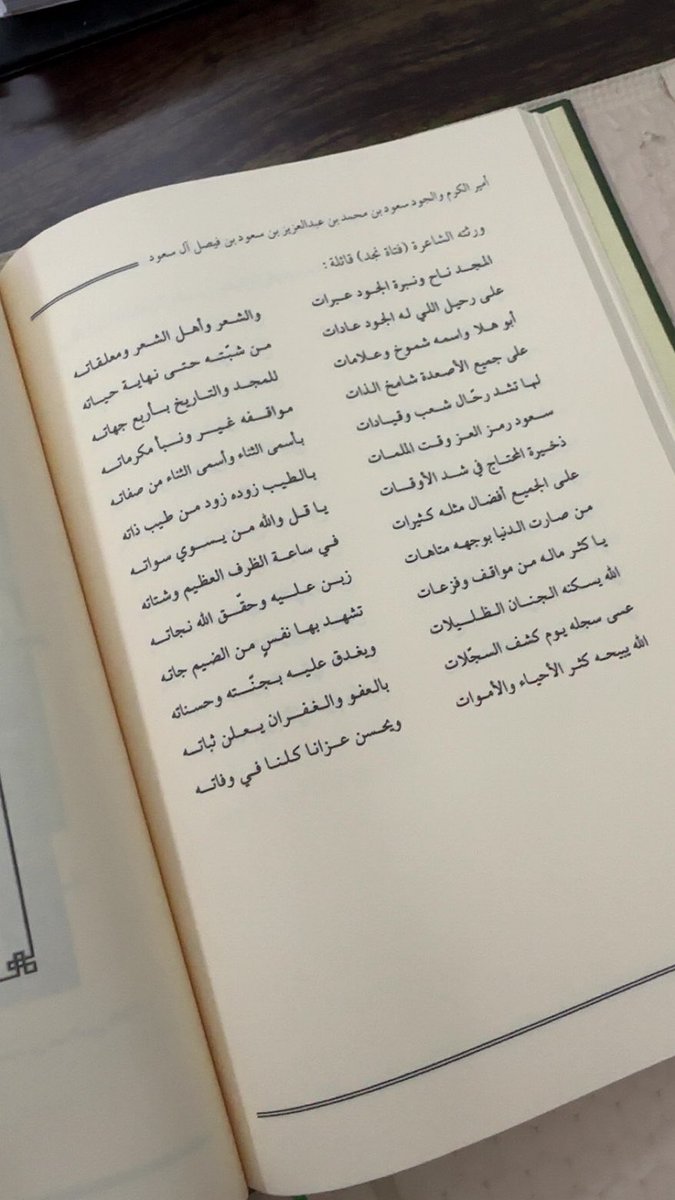 أمير الكرم والجود سعود بن محمد بن عبدالعزيز بن سعود بن فيصل آل سعود
ورثته الشاعرة (فتاة نجد) قائلة :
المجد ناح ونبرة الجود عبرات والشعر وأهل الشعر ومعلقاته
على رحيل اللي له الجود عادات من شبّته حتى نهاية حياته
أبو هلا واسمه شموخ وعلامات للمجد والتاريخ بأربع جهاته
على جميع الأصعدة شامخ الذات مواقفه غير ونبأ مكرماته
لها تشد رحّال شعب وقيادات بأسمى الثناء وأسمى الثناء من صفاته
سعود رمز العز وقت الملمات بالطيب زوده زود من طيب ذاته
ذخيرة المحتاج في شد الأوقات يا قل والله من يسوي سواته
على الجميع أفضال مثله كثيرات في ساعة الظرف العظيم وشتاته
من صارت الدنيا بوجهه متاهات زبن عليه وحقّق الله نجاته
يا كثر ماله من مواقف وفزعات تشهد بها نفسٍ من الضيم جاته
الله يسكنه الجنان الظليلات ويغدق عليه بجنّته وحسناته
عسى سجله يوم كشف السجّلات بالعفو والغفران يعلن ثباته
الله يبيحه كثر الأحياء والأموات ويحسن عزانا كلنا في وفاته